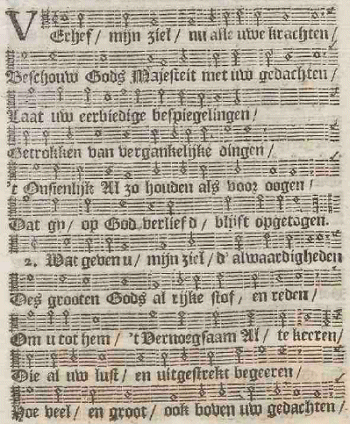 VErhef / mijn ziel / nu alle uwe krachten /
Beschouw Gods Majesteit met uw gedachten /
Laat uw eerbiedige bespiegelingen /
Getrokken van vergankelijke dingen /
't Onsienlijk Al zo houden als voor oogen /
Dat gy / op God verliefd / blijft opgetogen.
2. Wat geven u / mijn ziel / d'alwaardigheden
Des grooten Gods al rijke stof / en reden /
Om u tot hem / 't Vernoegsaam Al / te keeren /
Die al uw lust / en uitgestrekt begeeren /
Hoe veel / en groot / ook boven uw gedachten /